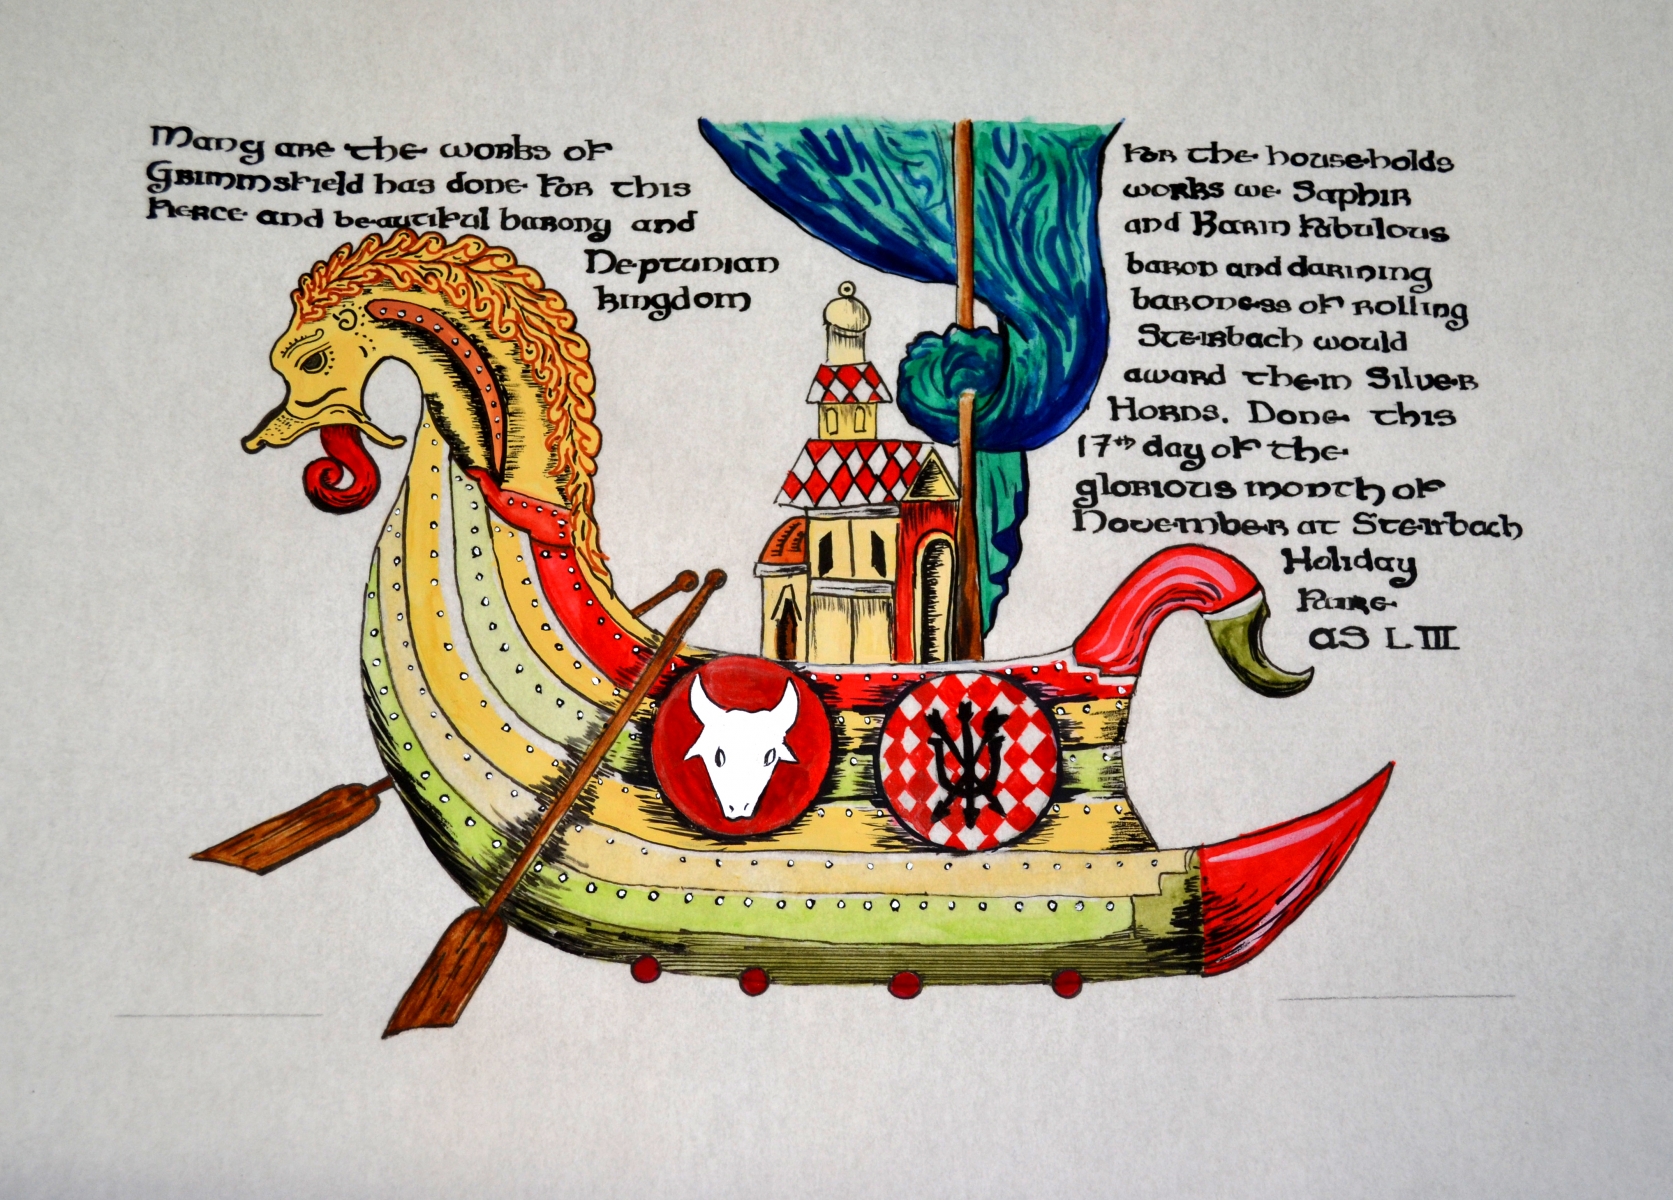 Many are the works of
Grimmsfield has done for this
fierce and beautiful barony and
Neptunian
kingdom
for the households
works we Saphir
and Karin fabulous
baron and darining
baroness of rolling
Steirbach would
award them Silver
Horns. Done this
17th day of the
glorious month of
November at Steirbach
Holiday
Faire
AS LIII